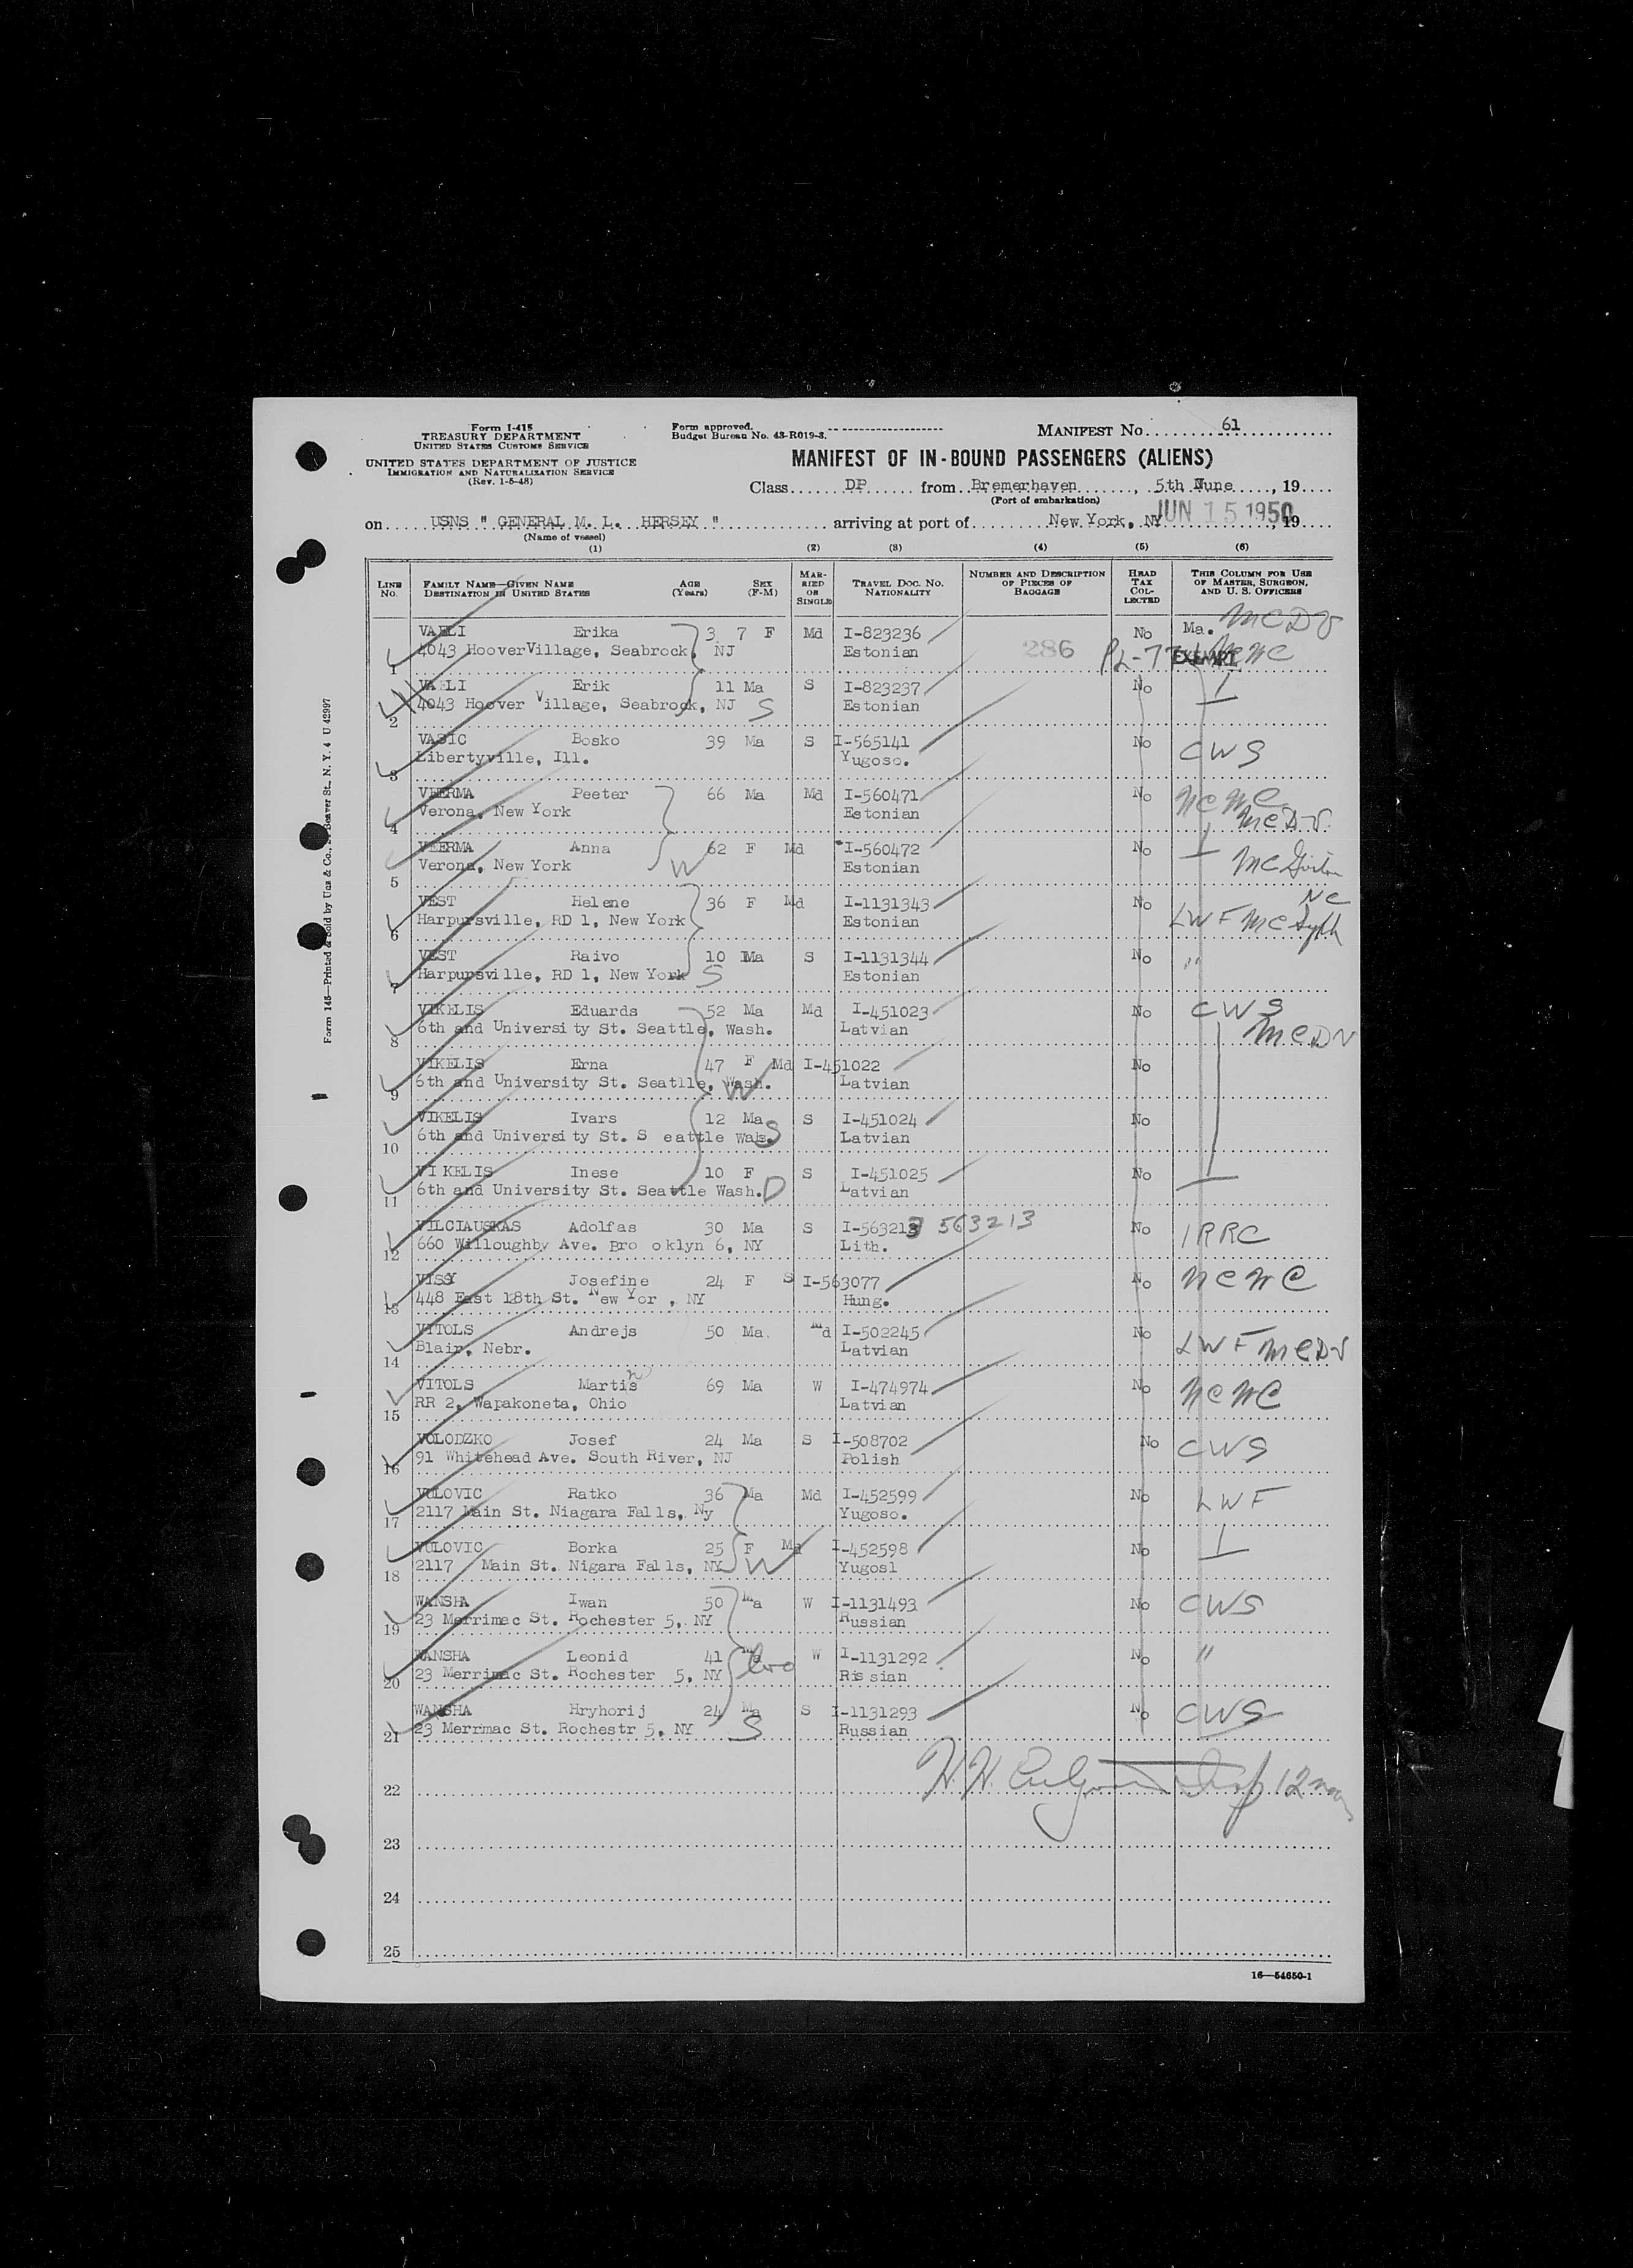 Form I-415
TREASURY DEPARTMENT
UNITED STATES CUSTOMS SERVICE
UNITED STATES DEPARTMENT OF JUSTICE
IMMIGRATION AND NATURALIZATION SERVICE
(Rev. 1-5-48)
Form approved.
Budget Bureau No. 43-R019-3.
MANIFEST No. 61
MANIFEST OF IN-BOUND PASSENGERS (ALIENS)
Class DP from Bremerhaven, 5th June, 19
(Port of embarkation)
on USNS " GENERAL M. L. HERSEY " arriving at port of New York, NY JUN 15 1950, 19
(Name of vessel)
(1) (2) (3) (4) (5) (6)
LINE No. FAMILY NAME—GIVEN NAME DESTINATION IN UNITED STATES AGE (Years) SEX (F-M) MARRIED OR SINGLE TRAVEL DOC. NO. NATIONALITY NUMBER AND DESCRIPTION OF PIECES OF BAGGAGE HEAD TAX COLLECTED THIS COLUMN FOR USE OF MASTER, SURGEON, AND U. S. OFFICERS
VAELI Erika 3 7 F Md I-823236 No Ma. McDV
1 4043 HooverVillage, Seabrock, NJ Estonian 286 PL-774 EXEMPT NCWC
VAELI Erik 11 Ma S I-823237 No
2 4043 Hoover Village, Seabrook, NJ S Estonian
VASIC Bosko 39 Ma S I-565141 No CWS
3 Libertyville, Ill. Yugoso.
VEERMA Peeter 66 Ma Md I-560471 No NCWC
4 Verona, New York Estonian McDV
VEERMA Anna 62 F Md I-560472 No
5 Verona, New York W Estonian
VEST Helene 36 F Md I-1131343 No NC
6 Harpursville, RD 1, New York Estonian LWF
VEST Raivo 10 Ma S I-1131344 No "
7 Harpursville, RD 1, New York S Estonian
VIKELIS Eduards 52 Ma Md I-451023 No CWS
8 6th and University St. Seattle, Wash. Latvian McDV
VIKELIS Erna 47 F Md I-451022 No
9 6th and University St. Seatlle, Wash. W Latvian
VIKELIS Ivars 12 Ma S I-451024 No
10 6th and University St. S eattle Wahs. S Latvian
VI KELIS Inese 10 F S I-451025 No
11 6th and University St. Seattle Wash. D Latvian
VILCIAUSKAS Adolfas 30 Ma S I-563213 563213 No IRRC
12 660 Willoughby Ave. Bro oklyn 6, NY Lith.
VISSY Josefine 24 F S I-563077 No NCWC
13 448 East 18th St. New Yor , NY Hung.
VITOLS Andrejs 50 Ma. Md I-502245 No LWF McDV
14 Blair, Nebr. Latvian
VITOLS Martis 69 Ma W I-474974 No NCWC
15 RR 2, Wapakoneta, Ohio Latvian
VOLODZKO Josef 24 Ma S I-508702 No CWS
16 91 Whitehead Ave. South River, NJ Polish
VULOVIC Ratko 36 Ma Md I-452599 No LWF
17 2117 Main St. Niagara Falls, Ny Yugoso.
VULOVIC Borka 25 F Md I-452598 No
18 2117 Main St. Nigara Falls, NY W Yugosl
WANSHA Iwan 50 Ma W I-1131493 No CWS
19 23 Merrimac St. Rochester 5, NY Russian
WANSHA Leonid 41 Ma W I-1131292 No "
20 23 Merrimac St. Rochester 5, NY bro Rissian
WANSHA Hryhorij 24 Ma S I-1131293 No CWS
21 23 Merrmac St. Rochestr 5, NY S Russian
22
23
24
25
16—54650-1